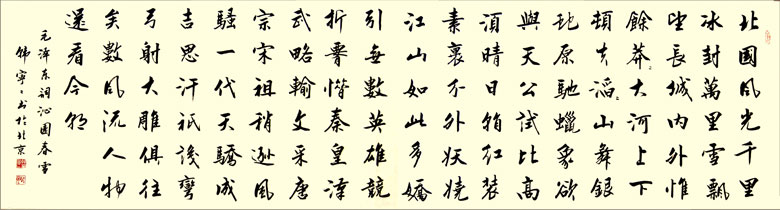 北國風光千里
冰封萬里雪飄
望長城内外惟
餘莽〻大河上下
頓失滔〻山舞銀
蛇原馳蠟象欲
與天公試比高
須晴日看紅裝
素裹分外妖嬈
江山如此多嬌
引無數英雄競
折腰惜秦皇漢
武略輸文采唐
宗宋祖稍遜風
騷一代天驕成
吉思汗祇識彎
弓射大雕俱往
矣數風流人物
還看今朝
毛澤東詞沁園春雪
韓寧〻書於北京